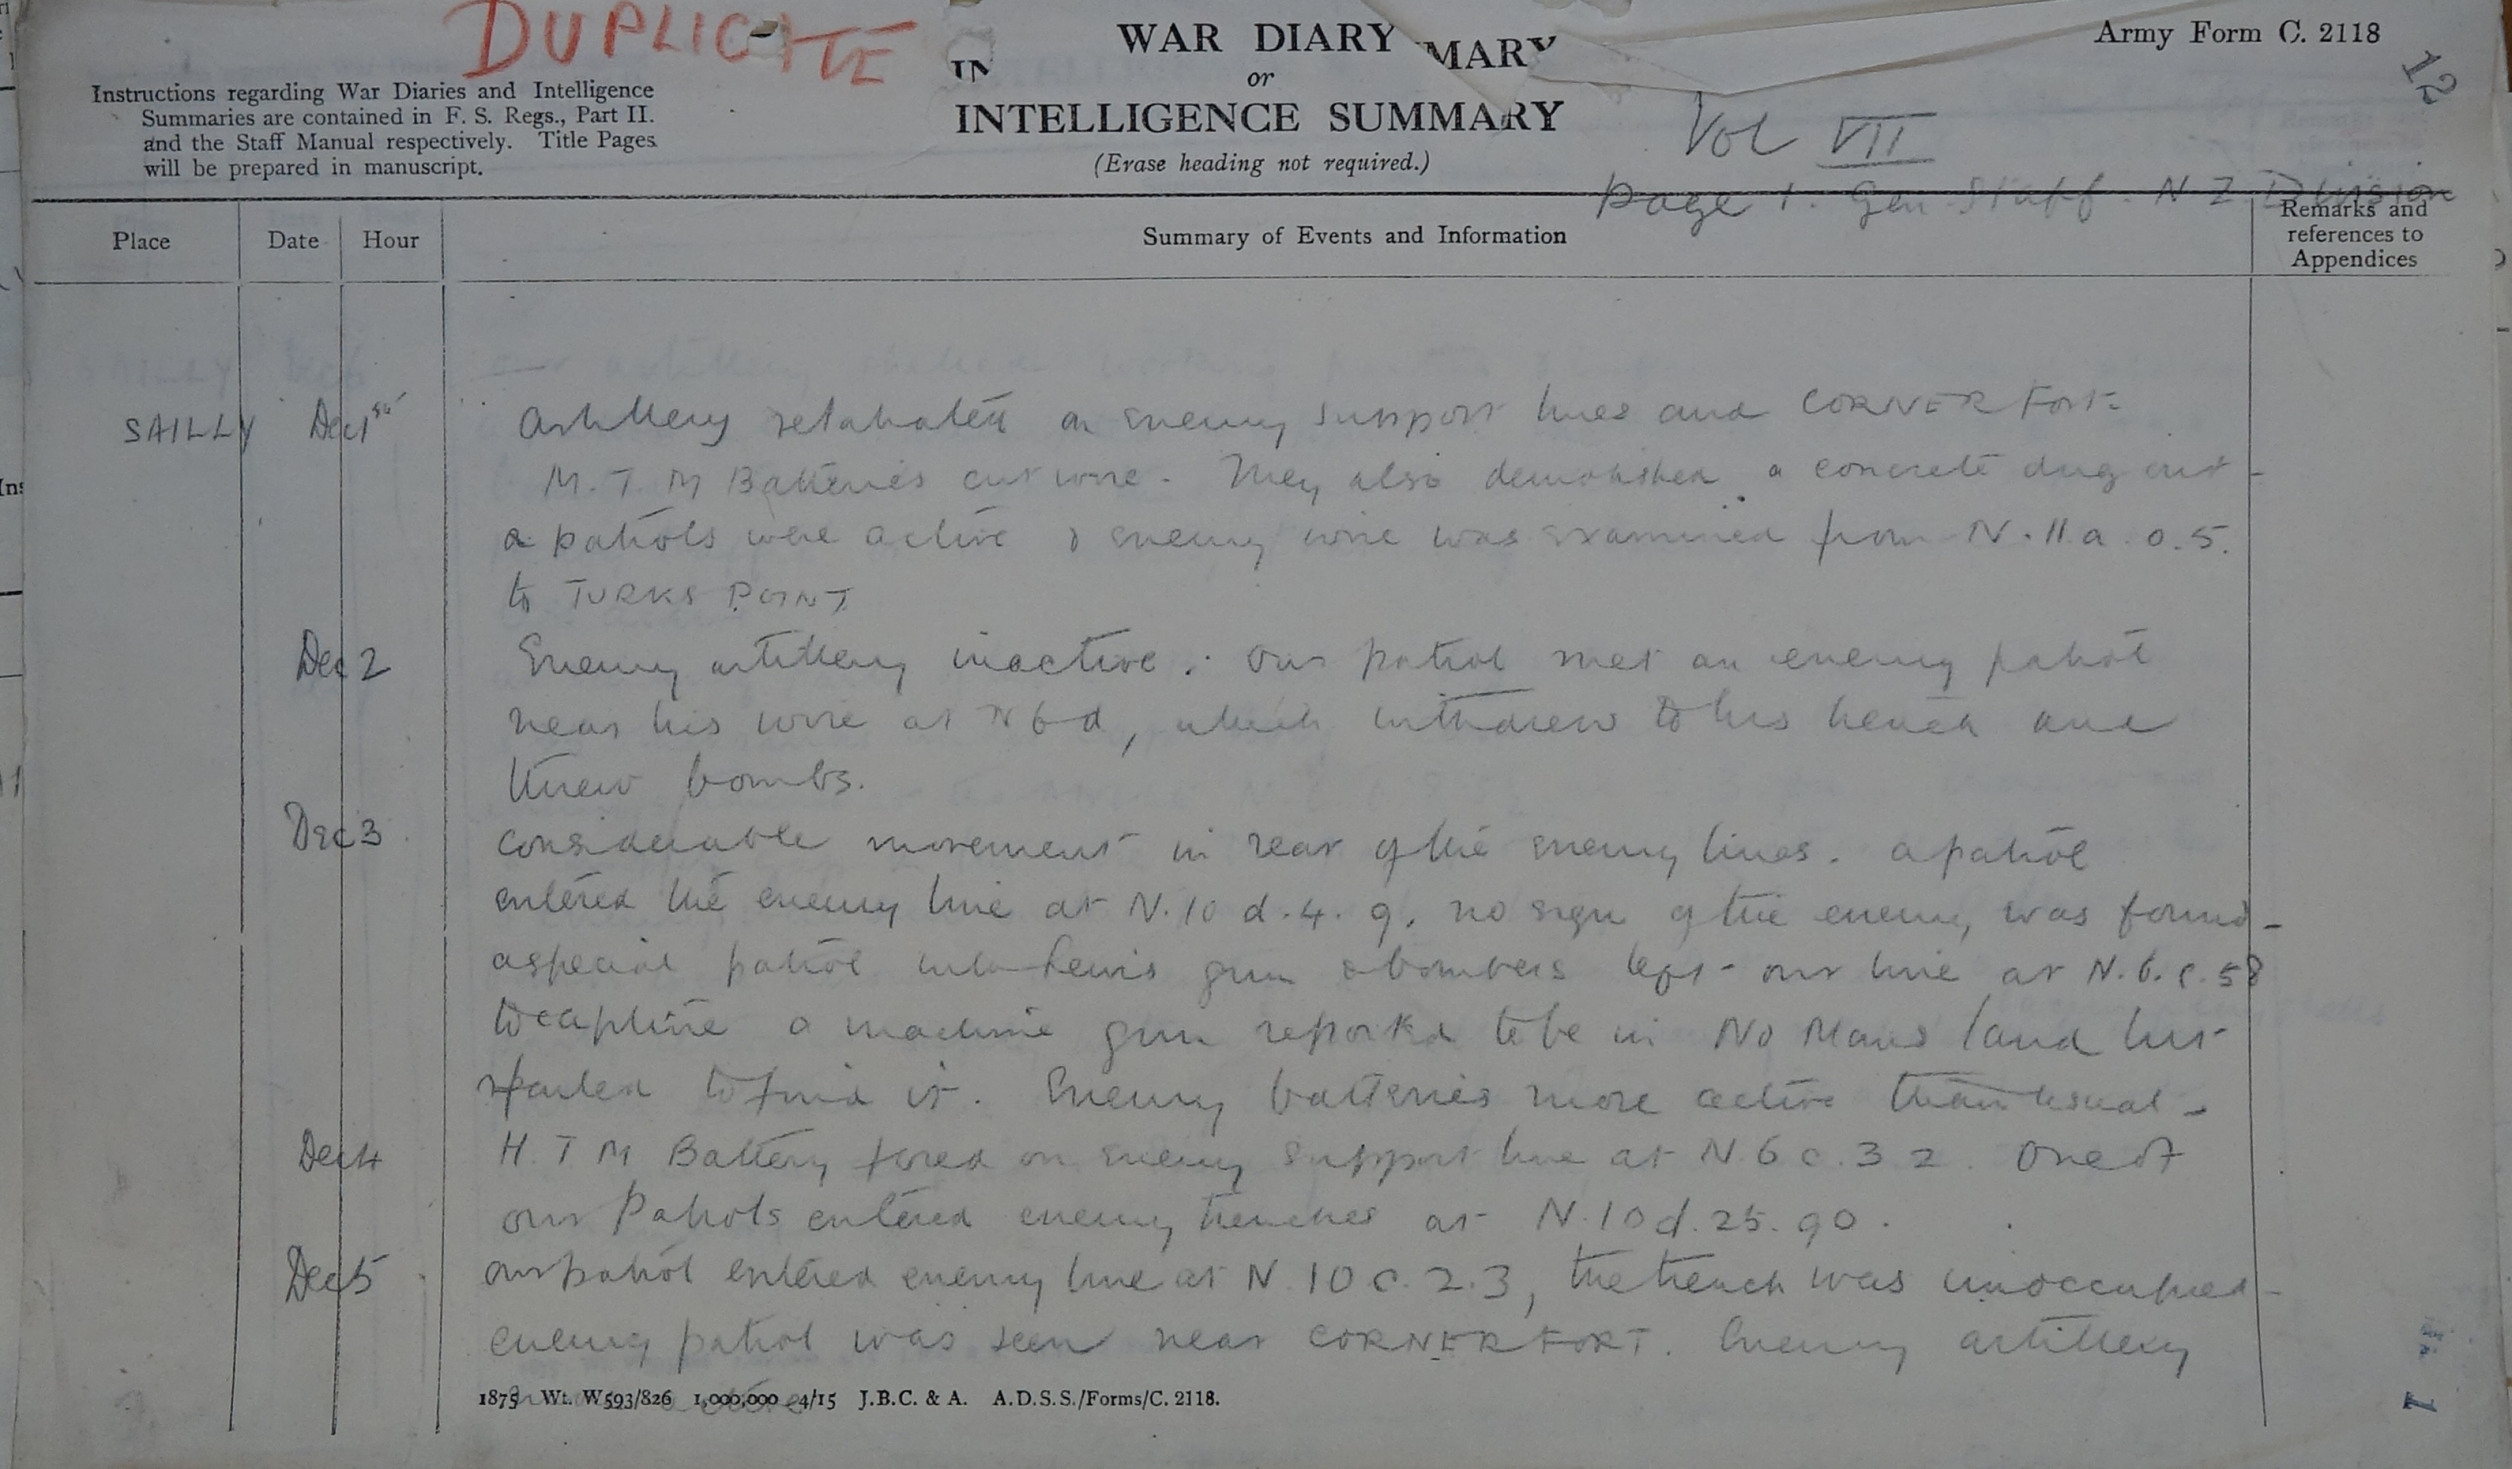 DUPLICATE
WAR DIARY
MARY
Army Form C. 2118
12
IN
or
INTELLIGENCE SUMMARY
(Erase heading not required.)
Instructions regarding War Diaries and Intelligence
Summaries are contained in F. S. Regs., Part II.
and the Staff Manual respectively. Title Pages
will be prepared in manuscript.
Vol VII
page 1. Gen Staff. N Z Division
Place Date Hour Summary of Events and Information Remarks and
references to
Appendices
SAILLY Dec 1st Artillery retaliated on enemy support lines and CORNER Fort-
M. T M Batteries cut wire. They also demolished a concrete dug out-
a patrols were active & enemy wire was examined from N. 11 a. 0.5.
to TURKS POINT
Dec 2 Enemy artillery inactive. Our patrol met an enemy patrol
near his wire at N 6 d, which withdrew to his trench and
threw bombs.
Dec 3 considerable movement in rear of the enemy lines. a patrol
entered the enemy line at N. 10 d. 4. 9. no sign of the enemy was found-
a special patrol with Lewis gun & bombers left our line at N. 6. c. 58
to capture a machine gun reported to be in No Mans land but
failed to find it. Enemy batteries more active than usual-
Dec 4 H. T M Battery fired on enemy support line at N. 6 c. 3 2. One of
our Patrols entered enemy trenches at N. 10 d. 25. 90.
Dec 5 our patrol entered enemy line at N. 10 c. 2. 3, the trench was unoccupied-
enemy patrol was seen near CORNER FORT. Enemy artillery
1875 Wt. W593/826 1,000,000 4/15 J.B.C. & A. A.D.S.S./Forms/C. 2118.